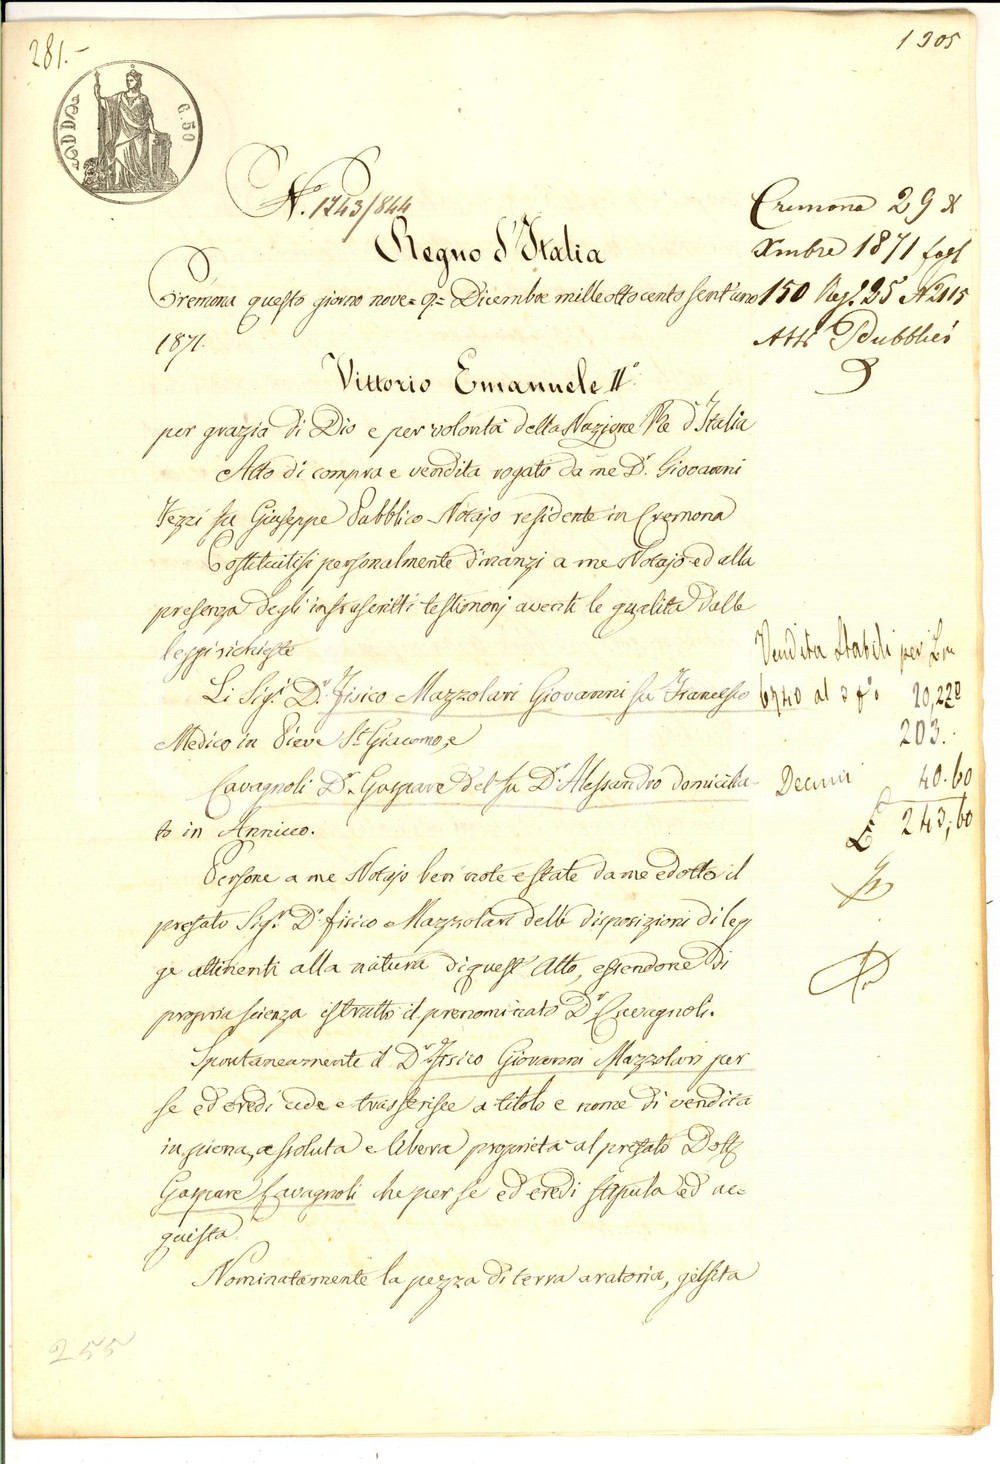 281.-
1305
C. 50
N.° 1243/844
Regno d'Italia
Cremona questo giorno nove = 9 = Dicembre mille otto cento sett'uno
1871.
Vittorio Emanuele II°
per grazia di Dio e per volontà della Nazione Re d'Italia
Atto di compra e vendita rogato da me Dr. Giovanni
Fezzi fu Giuseppe Pubblico Notajo residente in Cremona
Costituitisi personalmente dinanzi a me Notajo ed alla
presenza degli infrascritti testimonj aventi le qualità dalle
leggi richieste
Li Sig.ri Dr. Fisico Mazzolari Giovanni fu Francesco
Medico in Pieve S. Giacomo, e
Cavagnoli Dr. Gaspare del fu Dr. Alessandro domicilia-
to in Annicco.
Persone a me Notajo ben note e state da me edotto il
prefato Sig.r Dr. fisico Mazzolari delle disposizioni di leg
ge attinenti alla natura di quest'Atto, essendone di
propria scienza istrutto il prenominato Dr. Cavagnoli.
Spontaneamente il Dr. Fisico Giovanni Mazzolari per
se ed eredi cede e trasferisce a titolo e nome di vendita
in piena, assoluta e libera proprietà al prefato Dott.
Gaspare Cavagnoli che per sé ed eredi stipula ed ac=
quista
Nominatamente la pezza di terra aratoria, gelsita
Cremona 29
Xmbre 1871 fogl
150 Reg. 25 N 2115
Atti Pubblici
Vendita Stabili per
6740 al 3 %
20,220
203.
Decimi 40.60
£ 243,60
255